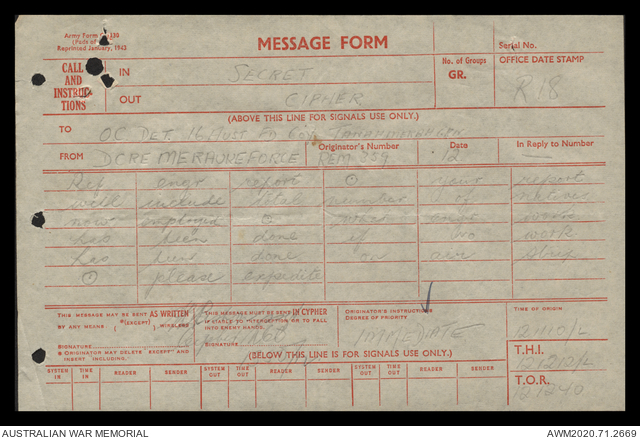 Army Form
(Pads of
Reprinted January, 1943
MESSAGE FORM
Serial No.
CALL
AND
INSTRUCTIONS
IN SECRET
OUT CIPHER
No. of Groups
GR.
OFFICE DATE STAMP
R18
(ABOVE THIS LINE FOR SIGNALS USE ONLY.)
TO O.C. DET. 16 AUST FD COY
FROM DCRE MERAUKEFORCE
Originator's Number
REM 359
Date
12
In Reply to Number
Ref engr report ⊙ your report
will include total number of natives
now employed ⊙ work
has been done if no work
has been done on air strip
⊙ please expedite
THIS MESSAGE MAY BE SENT AS WRITTEN
BY ANY MEANS (EXCEPT) WIRELESS
SIGNATURE
ORIGINATOR MAY DELETE EXCEPT AND
INSERT INCLUDING.
THIS MESSAGE MUST BE SENT IN CYPHER
IF LIABLE TO INTERCEPTION OR TO FALL
INTO ENEMY HANDS.
SIGNATURE
ORIGINATOR'S INSTRUCTIONS
DEGREE OF PRIORITY
IMMEDIATE
TIME OF ORIGIN
T.H.I.
T.O.R.
(BELOW THIS LINE IS FOR SIGNALS USE ONLY.)
SYSTEM IN TIME IN READER SENDER SYSTEM OUT TIME OUT READER SENDER SYSTEM OUT TIME OUT READER SENDER
AUSTRALIAN WAR MEMORIAL
AWM2020.71.2669